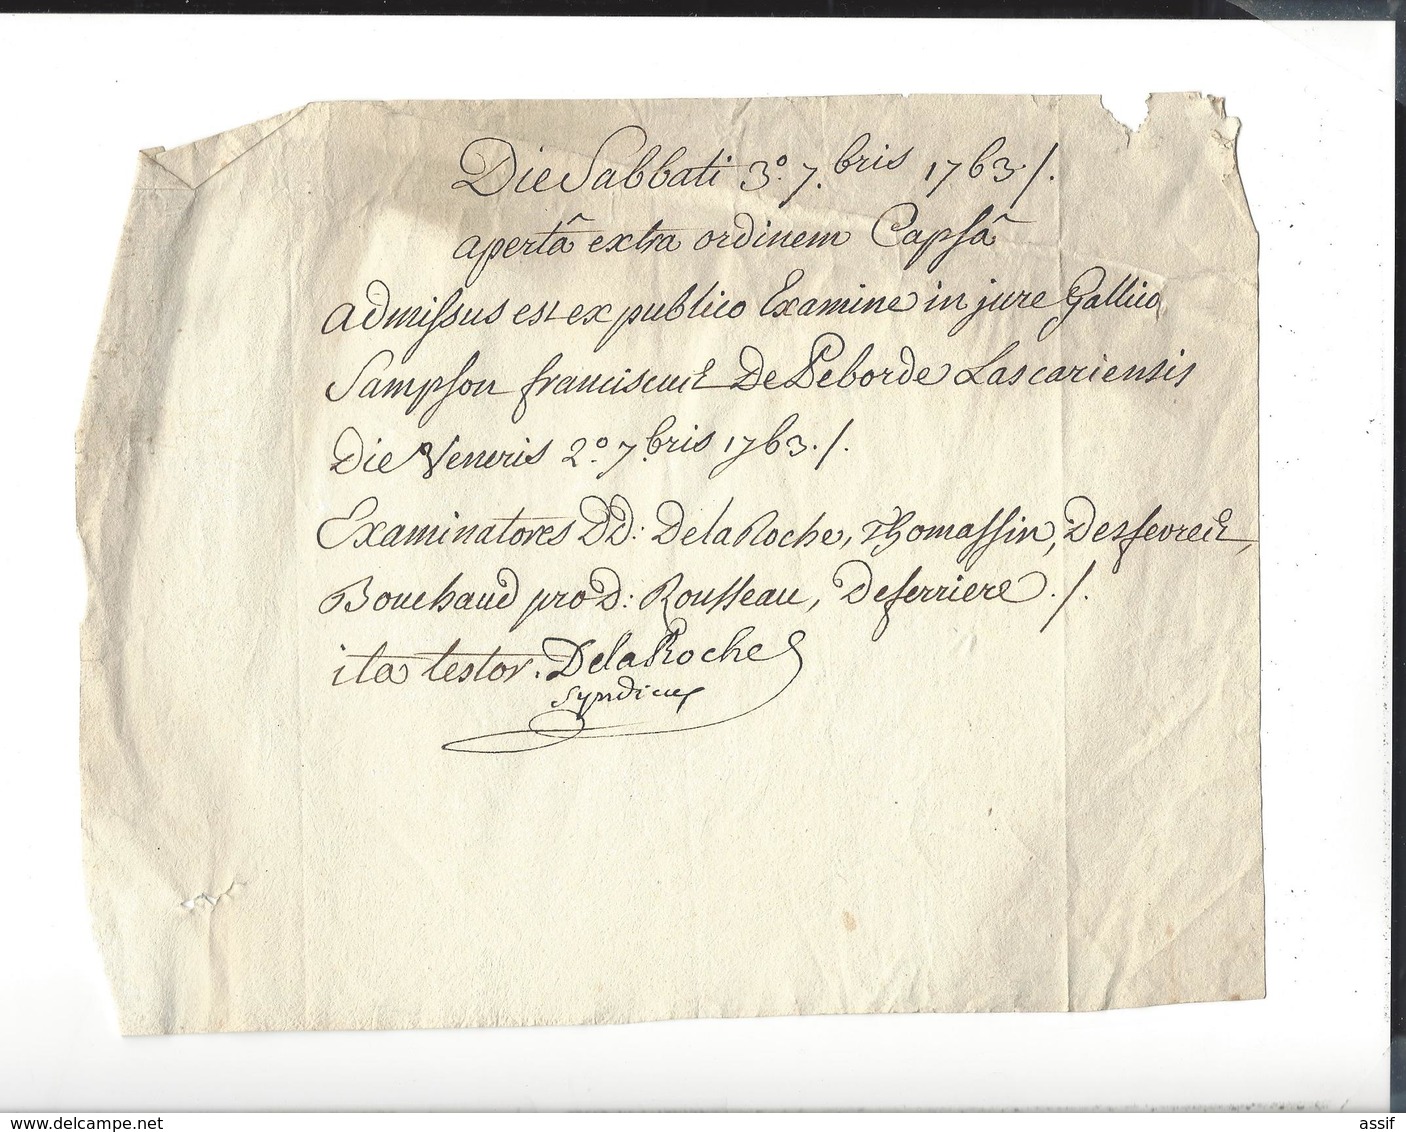 Die Sabbati 3.° 7.bris 1763 /.
apertâ extra ordinem Capsâ
admissus est ex publico Examine in jure Gallico
Sampson franciscus De Peborde Lascariensis
Die Veneris 2.° 7.bris 1763. /.
Examinatores DD: DelaRoche, Thomassin, Desfevres,
Bouchaud pro D: Rousseau, Deferriere. /.
ita testor. DelaRoche
Syndicus
assif